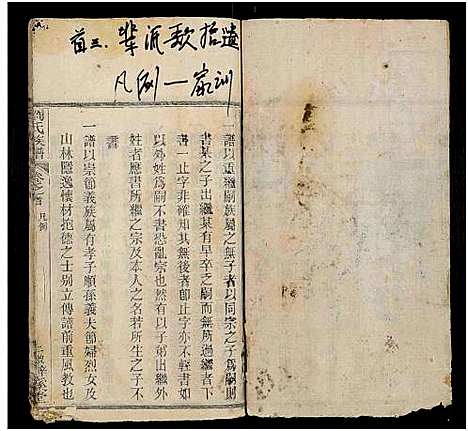 首三.輩派歌拾遺
凡例一家訓
一譜以重繼嗣族屬之無子者以同宗之子為嗣則
書某之子出繼某有早卒之嗣而無所過繼者下
書一止字非確知其無後者節止字亦不輕書如
以外姓為嗣不書恐亂宗也然有以子弟出繼外
姓者應書所繼之宗及本人之名若所生之子不
書
一譜以崇節義族屬有孝子順孫義夫節婦烈女及
山林隱逸懷材抱德之士別立傳譜前重風教也
劉氏族譜
卷之首
凡例